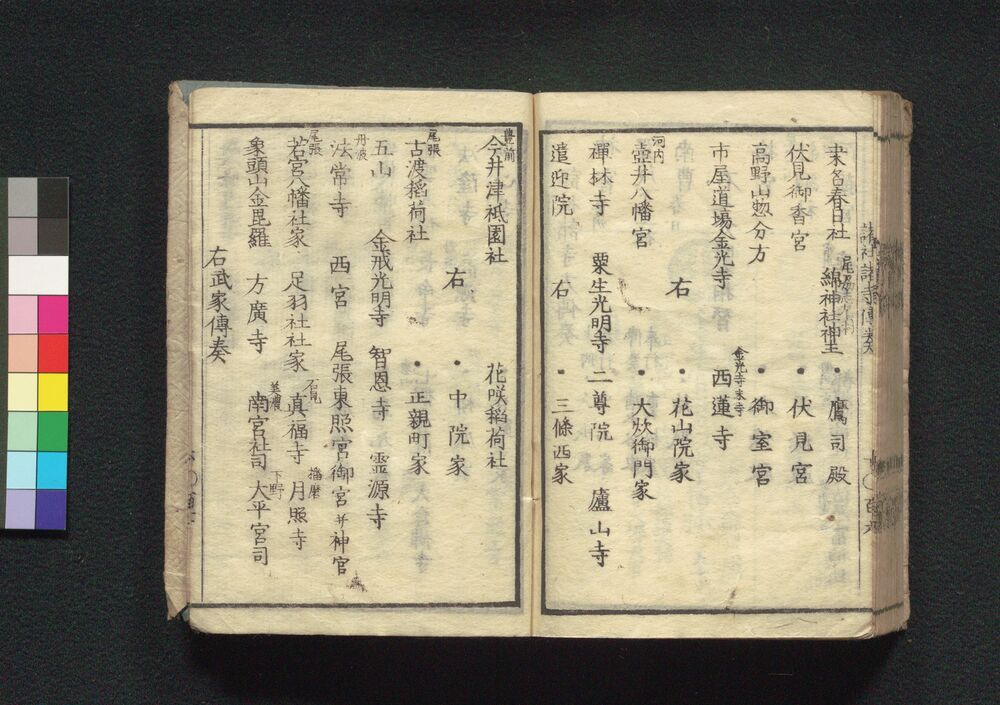 諸社諸寺傳奏
桒名春日社 綿神社神主 • 鷹司殿
伏見御香宮 • 伏見宮
高野山惣分方 • 御室宮
市屋道場金光寺 金光寺末寺 西蓮寺
右 • 花山院家
河内 壺井八幡宮 • 大炊御門家
禅林寺 粟生光明寺 二尊院 廬山寺
遣迎院 右 • 三條西家
豊前 今井津祗園社 花咲稲荷社
右 • 中院家
尾張 古渡稲荷社 • 正親町家
五山 金戒光明寺 智恩寺 霊源寺
丹波 法常寺 西宮 尾張東照宮御宮并神官
尾張 若宮八幡社家 足羽社社家 石見 真福寺 播磨 月照寺
象頭山金毘羅 方廣寺 美濃 南宮社司 下野 大平宮司
右武家傳奏